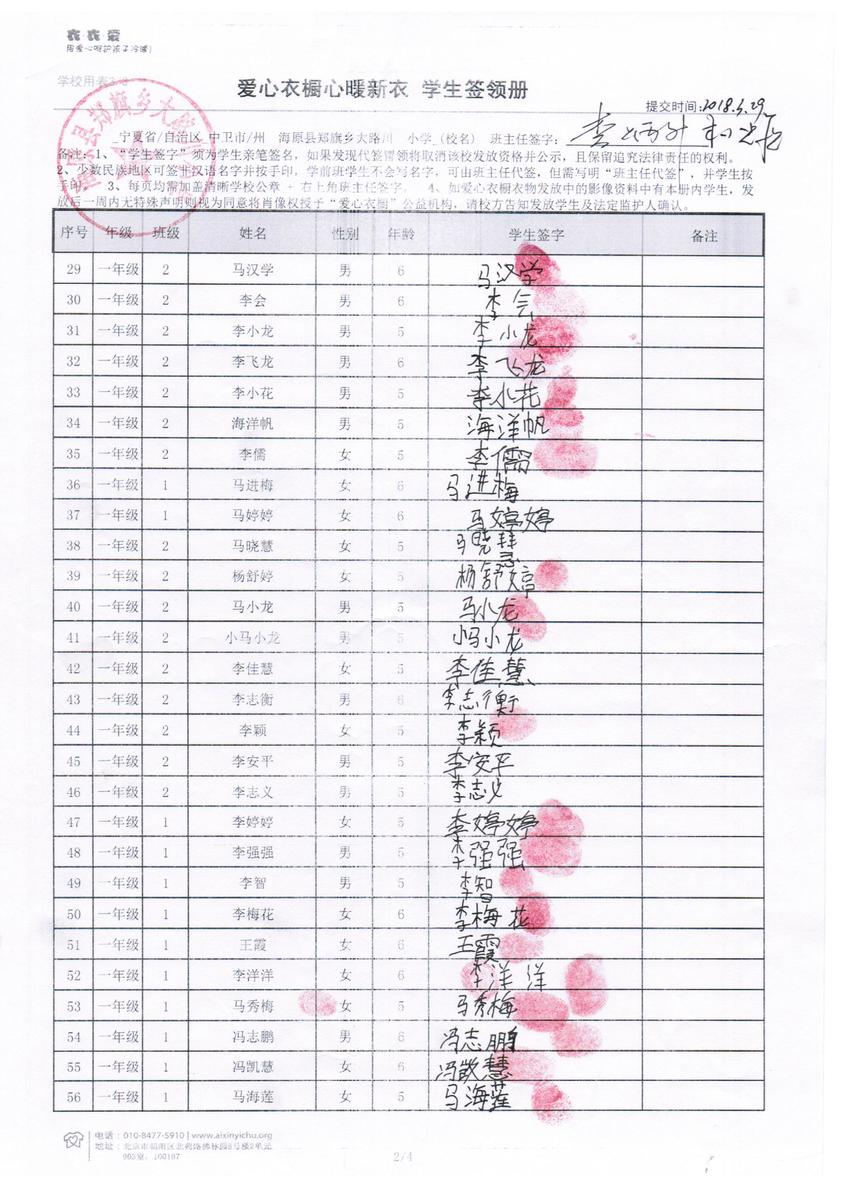 衣衣爱
用爱心呵护孩子冷暖!
学校用表3/3
爱心衣橱心暖新衣 学生签领册
提交时间:2018.5.29
宁夏省/自治区 中卫市/州 海原县郑旗乡大路川 小学 (校名) 班主任签字:
备注: 1、“学生签字”须为学生亲笔签名,如果发现代签冒领将取消该校发放资格并公示,且保留追究法律责任的权利。
2、少数民族地区可签非汉语名字并按手印,学前班学生不会写名字,可由班主任代签,但需写明“班主任代签”,并学生按
手印。 3、每页均需加盖清晰学校公章 + 右上角班主任签字。 4、如爱心衣橱衣物发放中的影像资料中有本册内学生,发
放后一周内无特殊声明则视为同意将肖像权授予“爱心衣橱”公益机构,请校方告知发放学生及法定监护人确认。
序号 年级 班级 姓名 性别 年龄 学生签字 备注
29 一年级 2 马汉学 男 6 马汉学
30 一年级 2 李会 男 6 李会
31 一年级 2 李小龙 男 5 李小龙
32 一年级 2 李飞龙 男 6 李飞龙
33 一年级 2 李小花 男 5 李小花
34 一年级 2 海洋帆 男 5 海洋帆
35 一年级 2 李儒 女 5 李儒
36 一年级 1 马进梅 女 6 马进梅
37 一年级 1 马婷婷 女 6 马婷婷
38 一年级 2 马晓慧 女 5 马晓慧
39 一年级 2 杨舒婷 女 5 杨舒婷
40 一年级 2 马小龙 男 5 马小龙
41 一年级 2 小马小龙 男 5 小马小龙
42 一年级 2 李佳慧 女 5 李佳慧
43 一年级 2 李志衡 男 6 李志衡
44 一年级 2 李颖 女 5 李颖
45 一年级 2 李安平 男 5 李安平
46 一年级 2 李志义 男 5 李志义
47 一年级 1 李婷婷 女 5 李婷婷
48 一年级 1 李强强 男 5 李强强
49 一年级 1 李智 男 5 李智
50 一年级 1 李梅花 女 6 李梅花
51 一年级 1 王霞 女 6 王霞
52 一年级 1 李洋洋 女 6 李洋洋
53 一年级 1 马秀梅 女 5 马秀梅
54 一年级 1 冯志鹏 男 6 冯志鹏
55 一年级 1 冯凯慧 女 6 冯凯慧
56 一年级 1 马海莲 女 5 马海莲
电话: 010-8477-5910 | www.aixinyichu.org
地址: 北京市朝阳区北苑路佛林园8号楼2单元
903室, 100107
2/4